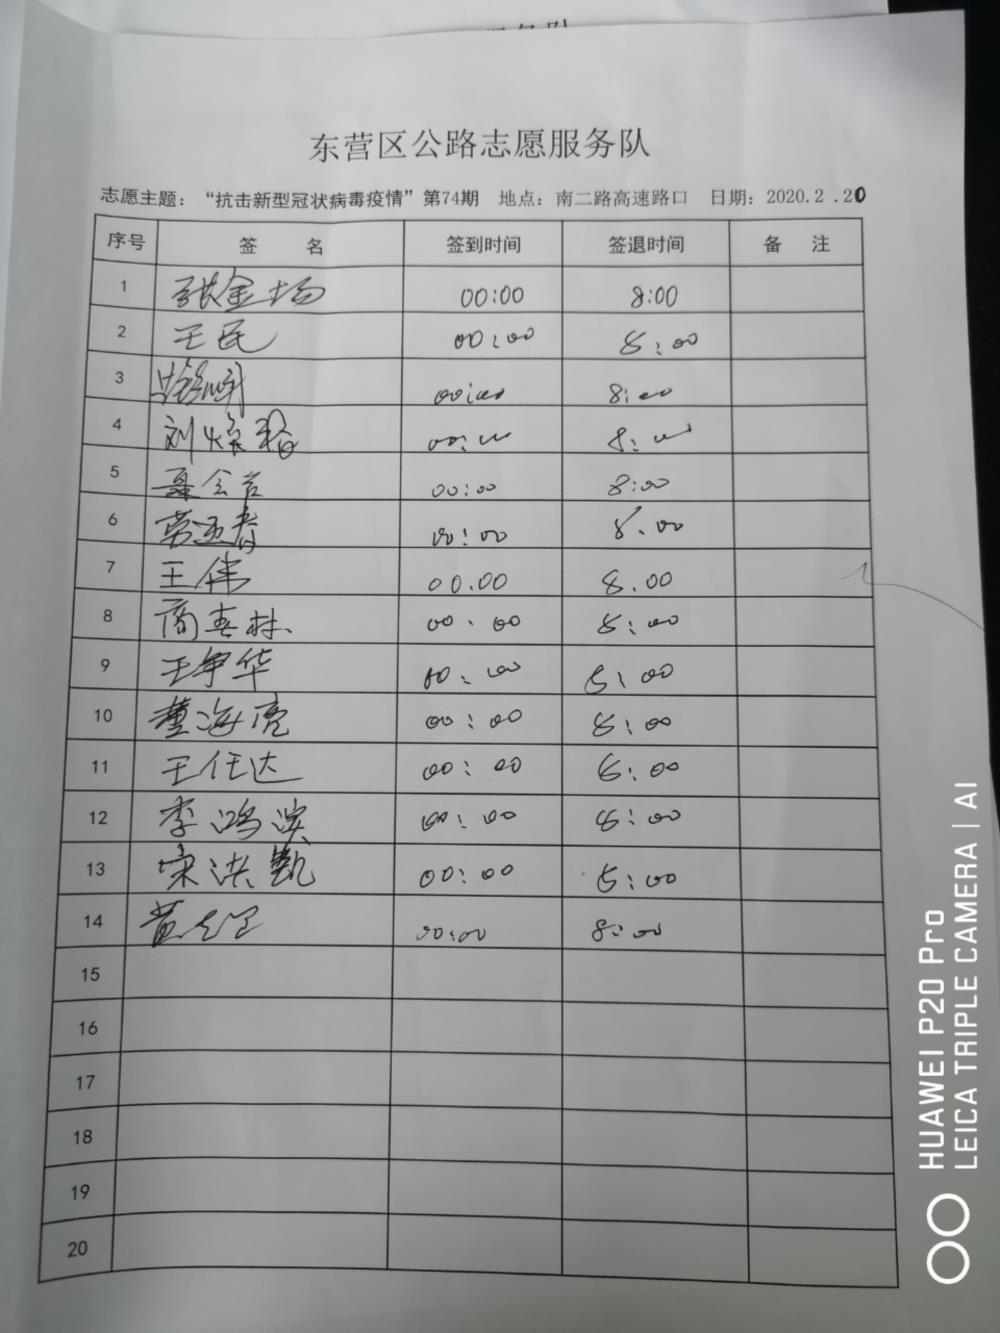 东营区公路志愿服务队
志愿主题：“抗击新型冠状病毒疫情”第74期 地点：南二路高速路口 日期：2020.2.20
序号 签 名 签到时间 签退时间 备 注
1 张金场 00:00 8:00
2 王民 00:00 8:00
3 00:00 8:00
4 刘焕 00:00 8:00
5 聂会营 00:00 8:00
6 00:00 8.00
7 王伟 00.00 8.00
8 商春林 00.00 8:00
9 王争华 00:00 8:00
10 董海亮 00:00 8:00
11 王任达 00:00 8:00
12 李鸿滨 00:00 8:00
13 宋洪凯 00:00 8:00
14 黄 00:00 8:00
15
16
17
18
19
20
HUAWEI P20 Pro
LEICA TRIPLE CAMERA | AI